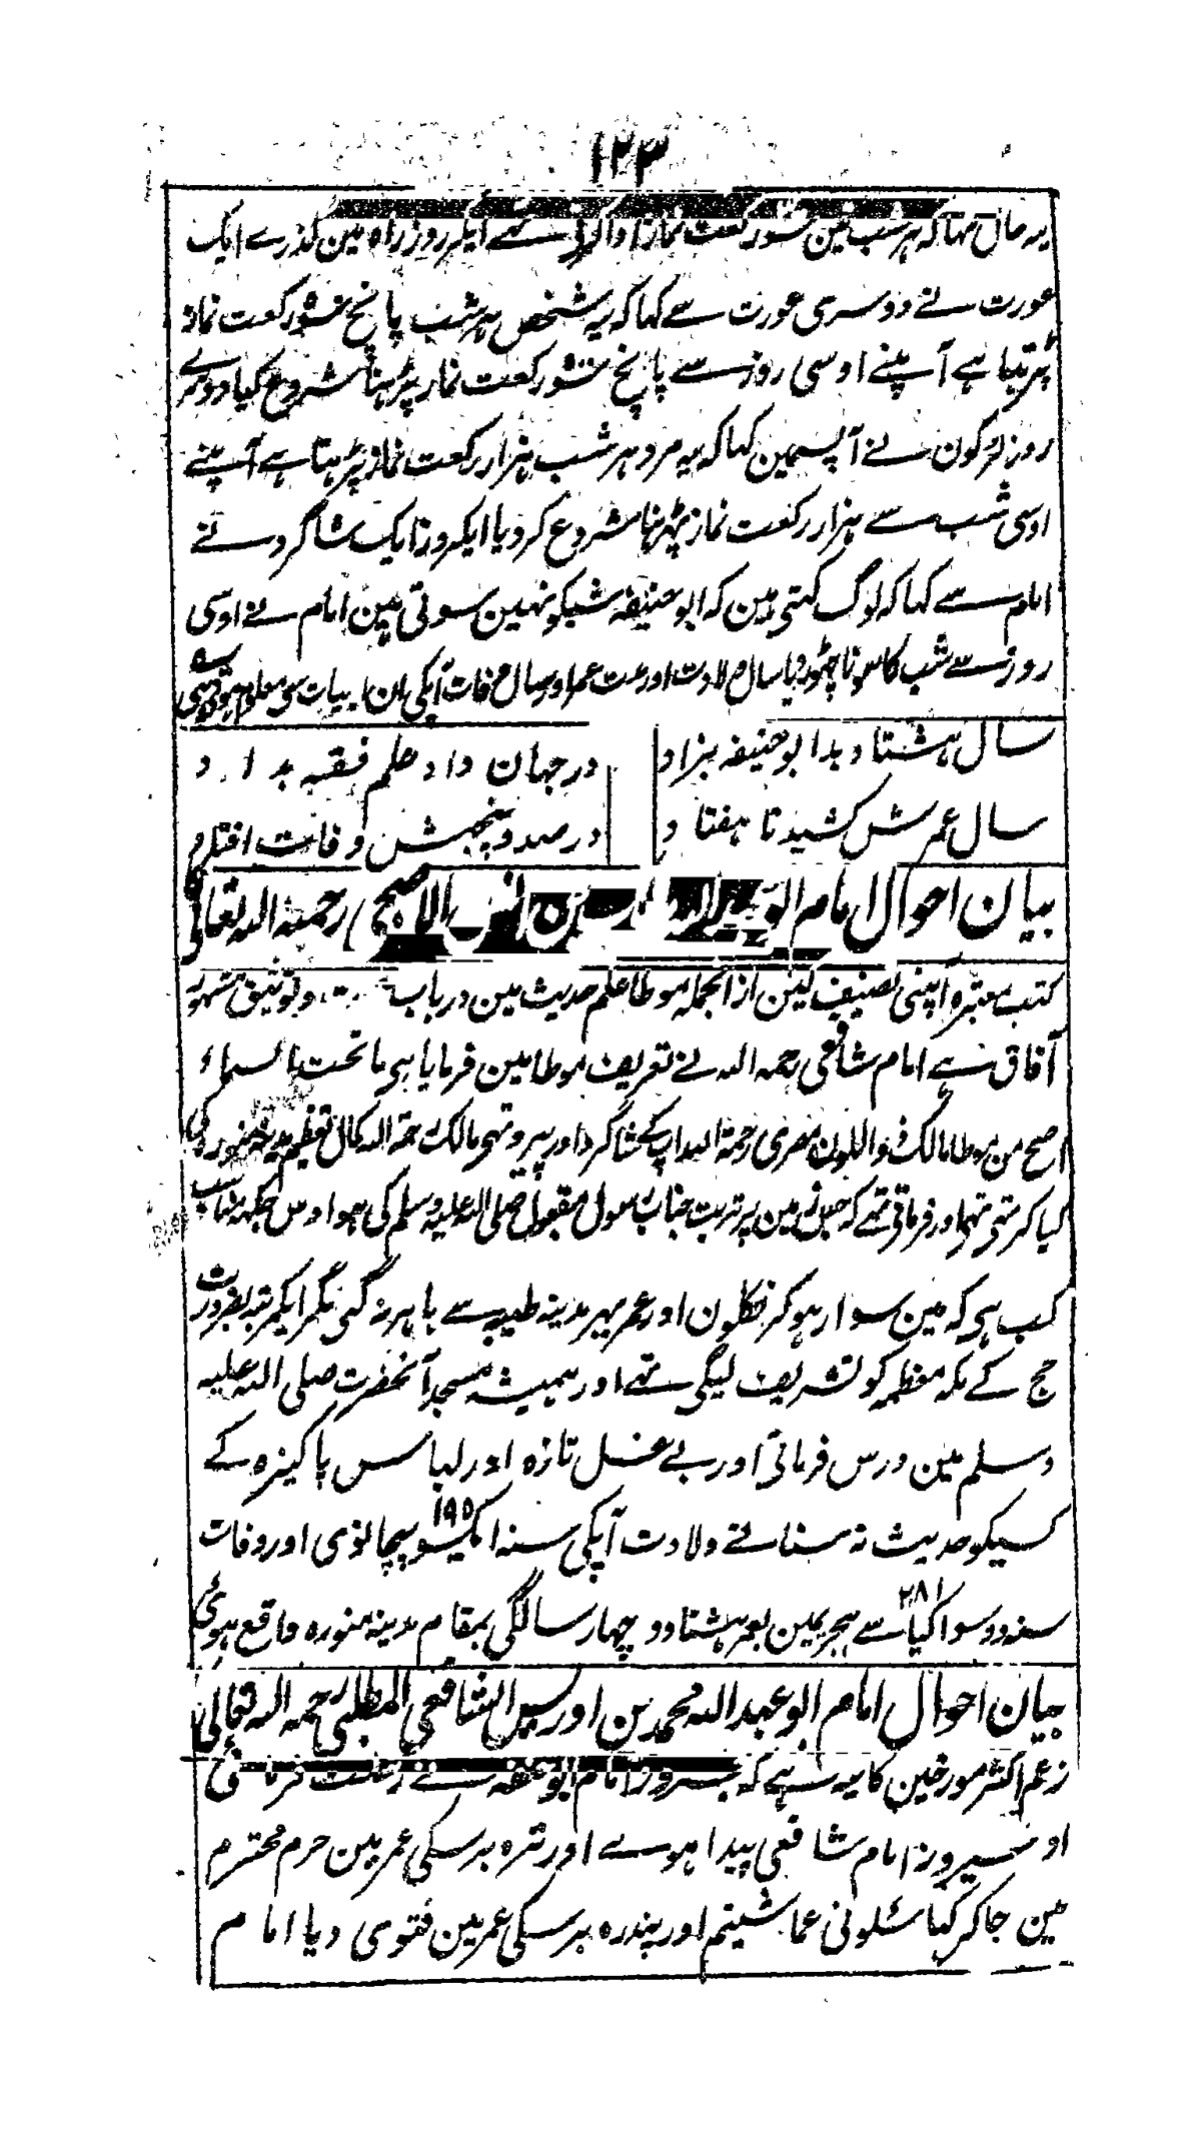 ۱۲۳
یہ حال تہا کہ ہر شب مین نماز ادا ایکروز راہ مین گذرے ایک
عورت نے دوسری عورت سے کہا کہ یہ شخص ہر شب پانچ سو رکعت نماز
پڑہتا ہے آپنے اوسی روز سے پانچ سو رکعت نماز پڑہنا شروع کیا دوسرے
روز لڑکون نے آپسمین کہا کہ یہ مرد ہر شب ہزار رکعت نماز پڑہتا ہے آپنے
اوسی شب سے ہزار رکعت نماز پڑہنا شروع کر دیا ایکروز ایک شاگرد نے
امام سے کہا کہ لوگ کہتی ہین کہ ابو حنیفہ شبکو نہین سوتی ہین امام نے اوسی
روز سے شب کا سونا چہوڑ دیا سال ولادت اور مدت عمر اور سال وفات آپکی ان ابیات سی معلوم
سال ہشتاد بد ابو حنیفہ بزاد
در جہان داد علم فقہ بداد
سال عمرش کشید تا ہفتاد
در صد و پنجہش وفات افتاد
بیان احوال امام بن انس الاصبحی رحمتہ اللہ تعالی
کتب معتبرہ آپنی تصنیف کین از انجملہ موطا علم حدیث مین درباب و توثیق مشہور
آفاق ہے امام شافعی رحمہ اللہ نے تعریف موطا مین فرمایا ہی ما تحت السماء
اصح من موطا مالک ذوالنون مصری رحمۃ اللہ آپکے شاگرد اور پیرو تہی مالک رحمۃ اللہ کمال تعظیم مدینہ منورہ کی
کیا کرتی تہی اور فرماتی تہے کہ جس زمین پر تربت جناب رسول مقبول صلی اللہ علیہ وسلم کی ہو اوس جگہ مناسب
کب ہی کہ مین سوار ہو کر نکلون اور عمر بہر مدینہ طیبہ سے باہر نہ گئی مگر ایکمرتبہ بضرورت
حج کے مکہ معظمہ کو تشریف لیگی تہے اور ہمیشہ مسجد آنحضرت صلی اللہ علیہ
وسلم مین درس فرماتی اور بے غسل تازہ اور لباس پاکیزہ کے
کسیکو حدیث نہ سناتے ولادت آپکی سنہ ایکسو پچانوی ۱۹۵ اور وفات
سنہ دو سو اکیاسے ۲۸۱ ہجریمین بعمر ہشتاد و چہار سالگی بمقام مدینہ منورہ واقع ہوئی
بیان احوال امام ابو عبد اللہ محمد بن ادریس الشافعی المطلبی رحمہ اللہ تعالی
زعم اکثر مورخین کا یہ ہے کہ جسروز امام ابو حنیفہ نے رحلت فرمائی
اوسیروز امام شافعی پیدا ہوے اور تیرہ برسکی عمر مین حرم محترم
مین جا کر کہا سئلونی عما شیتم اور پندرہ برسکی عمر مین فتوی دیا امام